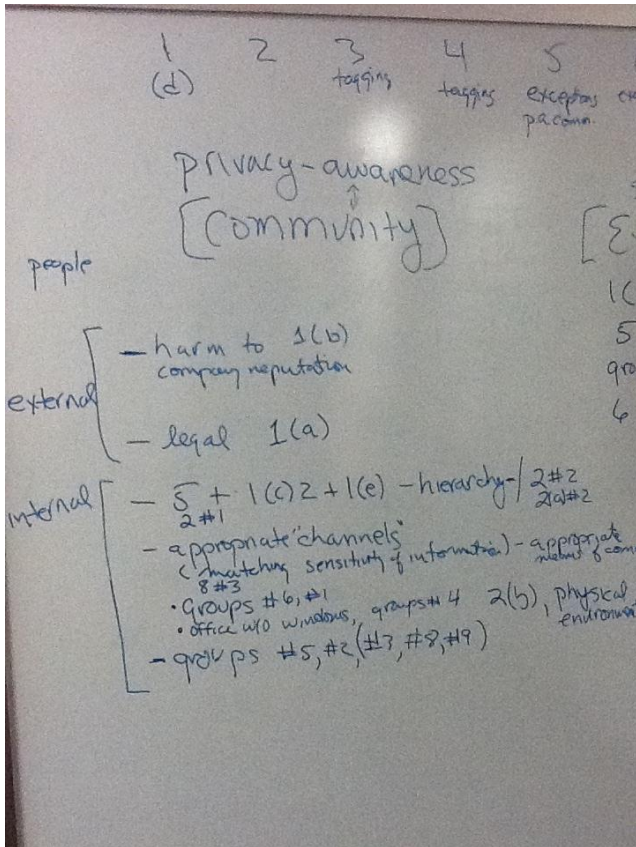 1 2 3 4 5
(d) tagging tagging exceptions
pacomm.
privacy-awareness
[Community] [E
people
1(
- harm to 1(b) 5
company reputation gro
external 6
- legal 1(a)
internal - 5 + 1(c)2 + 1(e) - hierarchy - / 2#2
2#1 2(a)#2
- appropriate "channels"
(matching sensitivity of information) - appropriate
8#3 of com
• groups #6, #1
• office w/o windows, groups #4 2(b), physical
environm
- groups #5, #2, (#3, #8, #9)